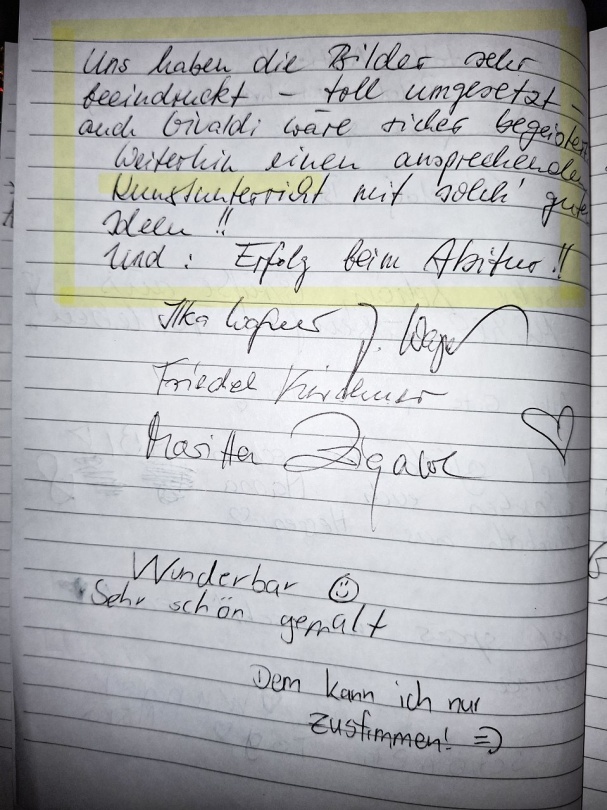 Uns haben die Bilder sehr
beeindruckt – toll umgesetzt –
auch Vivaldi wäre sicher begeistert
Weiterhin einen ansprechenden
Kunstunterricht mit solch' guten
Ideen !!
Und : Erfolg beim Abitur !!
Ilka Wagner J. Wagner
Friedel
Wunderbar ☺
Sehr schön gemalt
Dem kann ich nur
zustimmen! =)